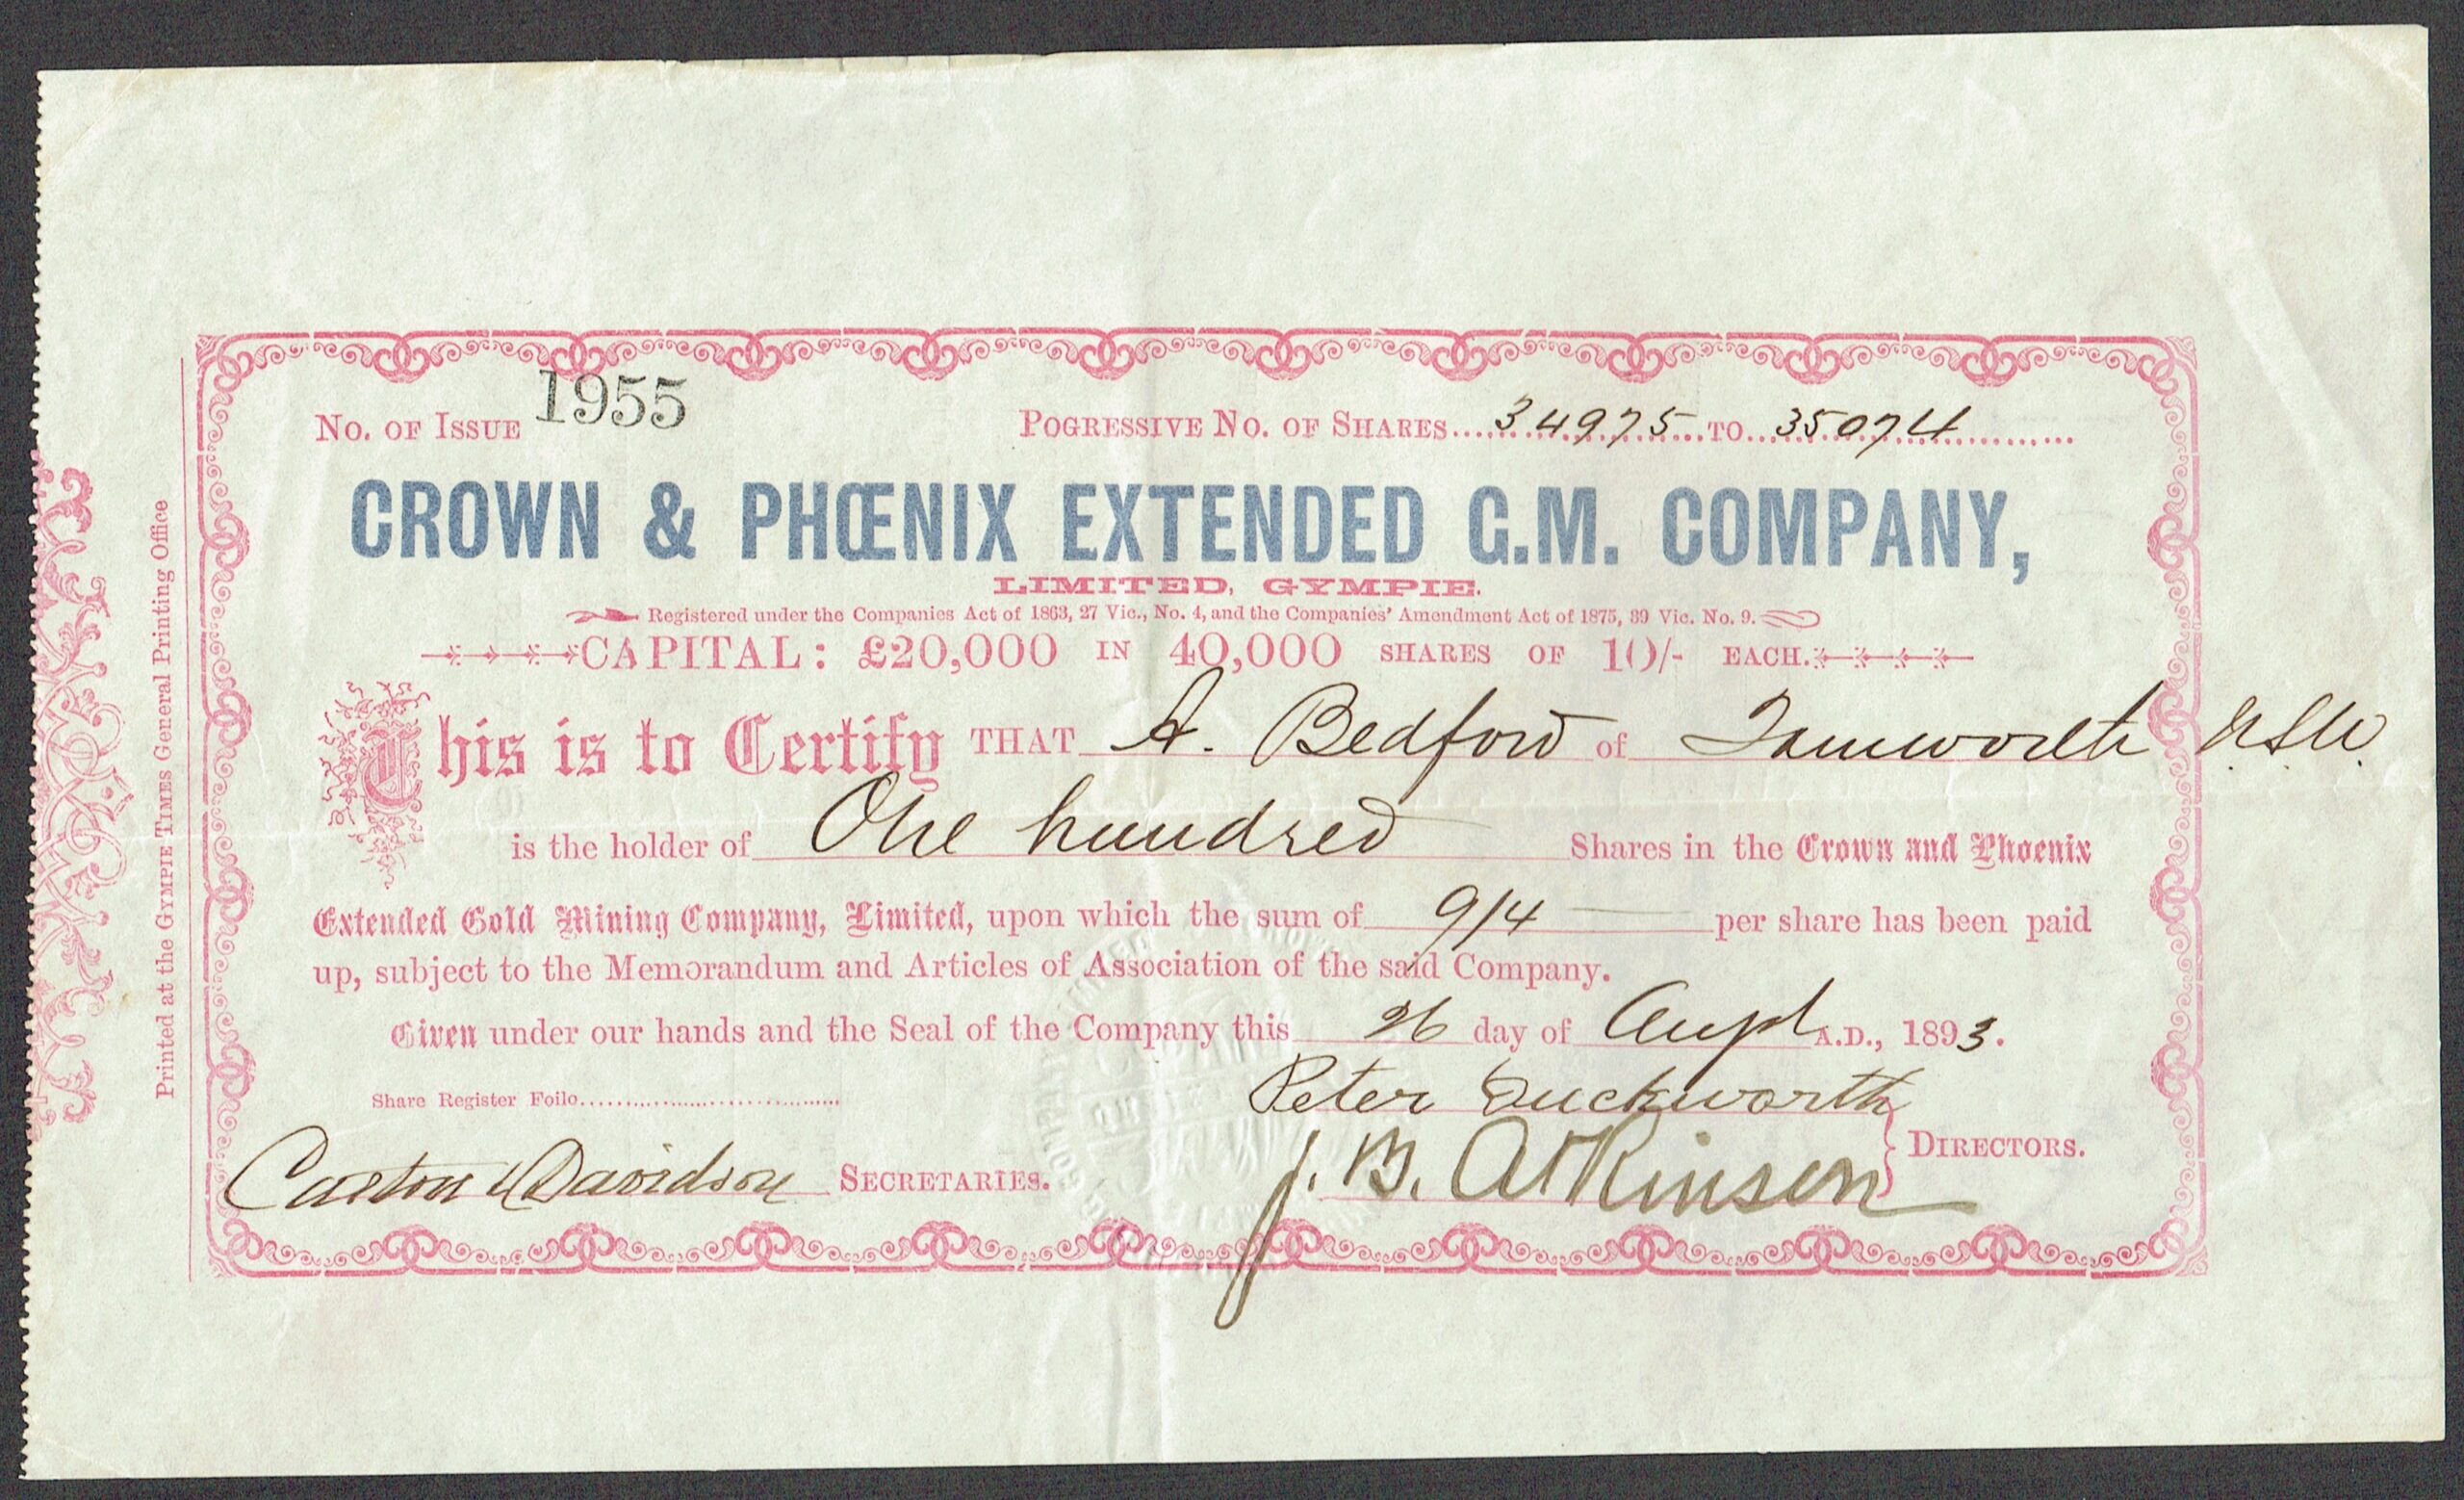 No. of Issue 1955
Pogressive No. of Shares 34975 to 35074
CROWN & PHŒNIX EXTENDED G.M. COMPANY,
LIMITED, GYMPIE.
Registered under the Companies Act of 1863, 27 Vic., No. 4, and the Companies' Amendment Act of 1875, 39 Vic. No. 9.
CAPITAL: £20,000 IN 40,000 SHARES OF 10/- EACH.
This is to Certify THAT A. Bedford of Tamworth N.S.W.
is the holder of One hundred Shares in the Crown and Phoenix
Extended Gold Mining Company, Limited, upon which the sum of 9/4 per share has been paid
up, subject to the Memorandum and Articles of Association of the said Company.
Given under our hands and the Seal of the Company this 26 day of Augst A.D., 1893.
Share Register Foilo
Peter Duckworth
J. B. Atkinson
Directors.
Davidson Secretaries.
Printed at the Gympie Times General Printing Office